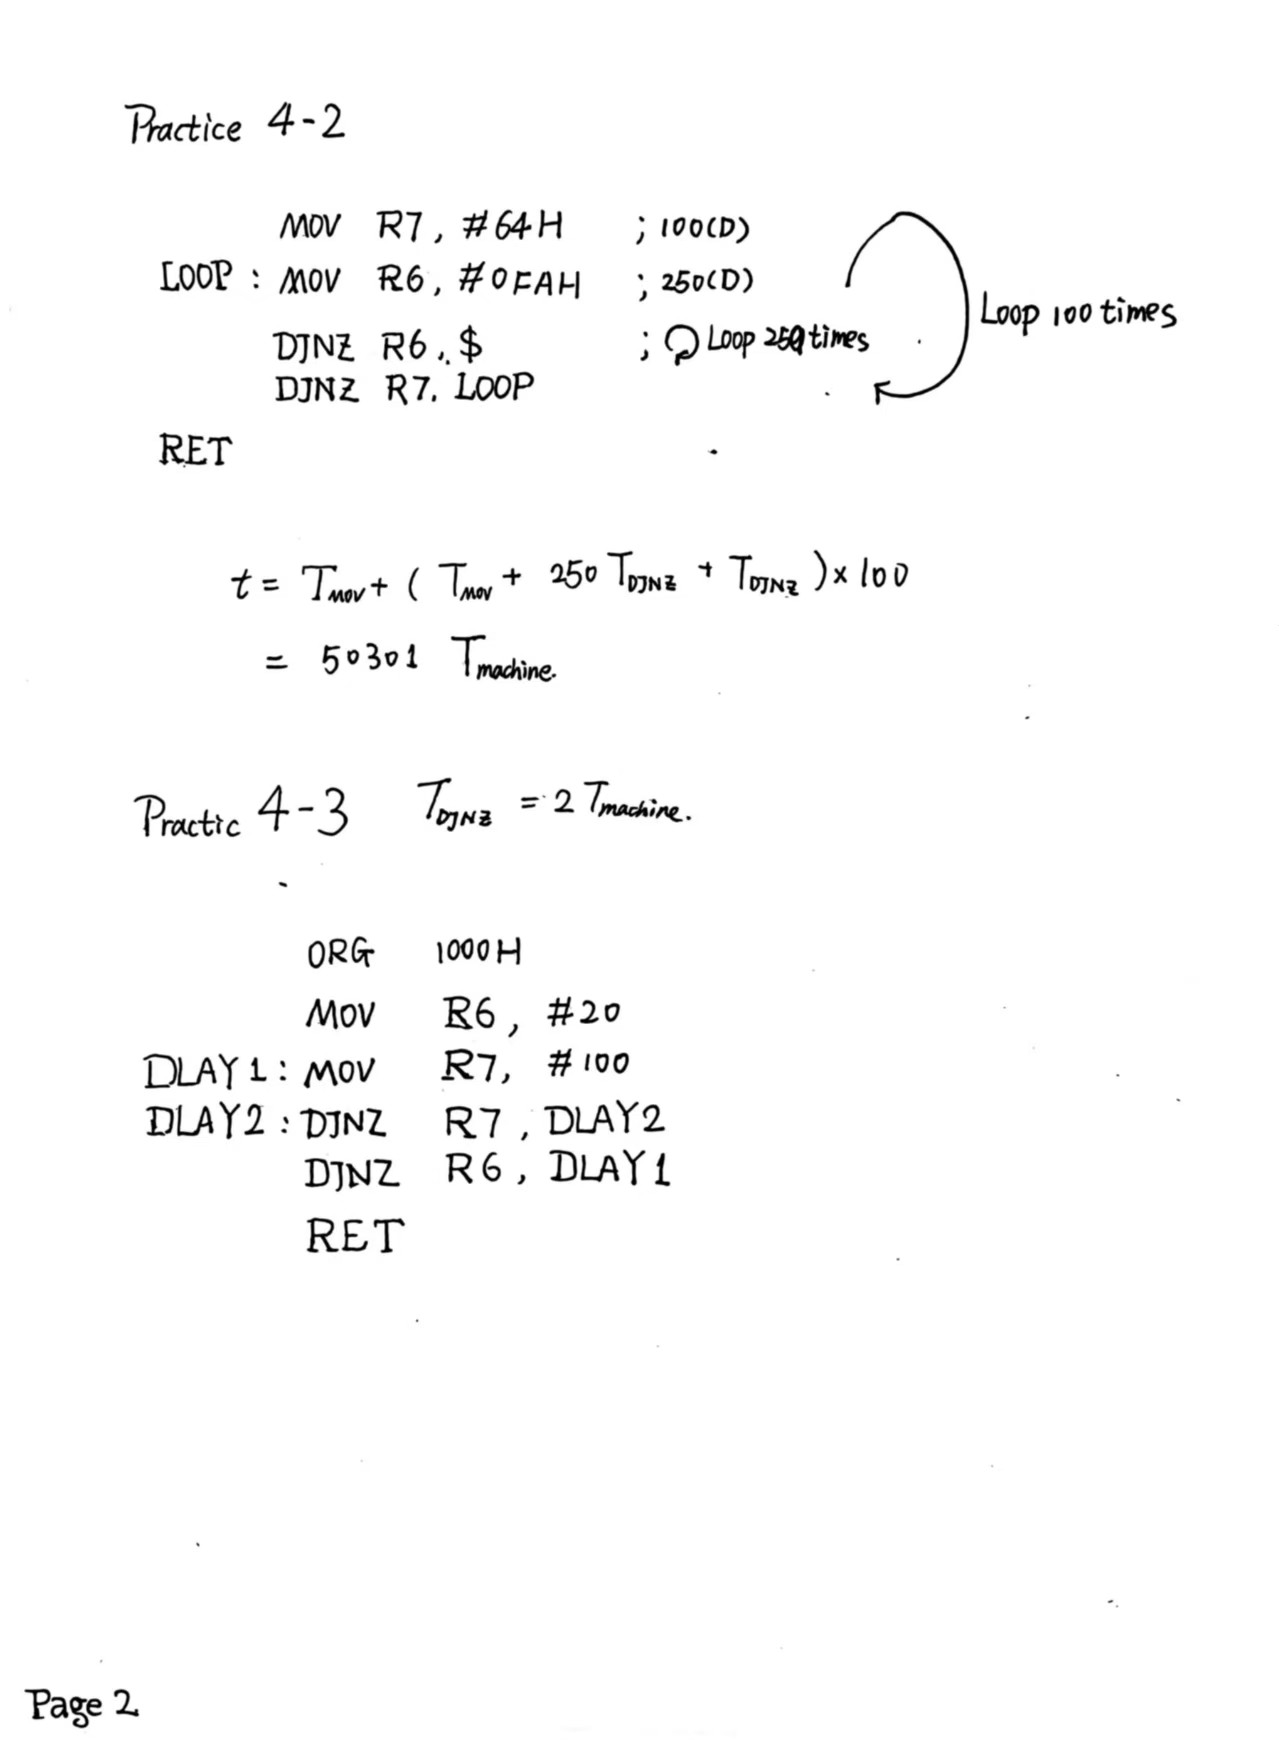 Practice 4-2
MOV R7, #64H ; 100(D)
LOOP : MOV R6, #0FAH ; 250(D)
Loop 100 times
DJNZ R6, $ ; Loop 250 times
DJNZ R7. LOOP
RET
t = Tmov + ( Tmov + 250 TDJNZ + TDJNZ ) x 100
= 50301 Tmachine.
Practic 4-3 TDJNZ = 2 Tmachine.
ORG 1000H
MOV R6, #20
DLAY1: MOV R7, #100
DLAY2: DJNZ R7, DLAY2
DJNZ R6, DLAY1
RET
Page 2